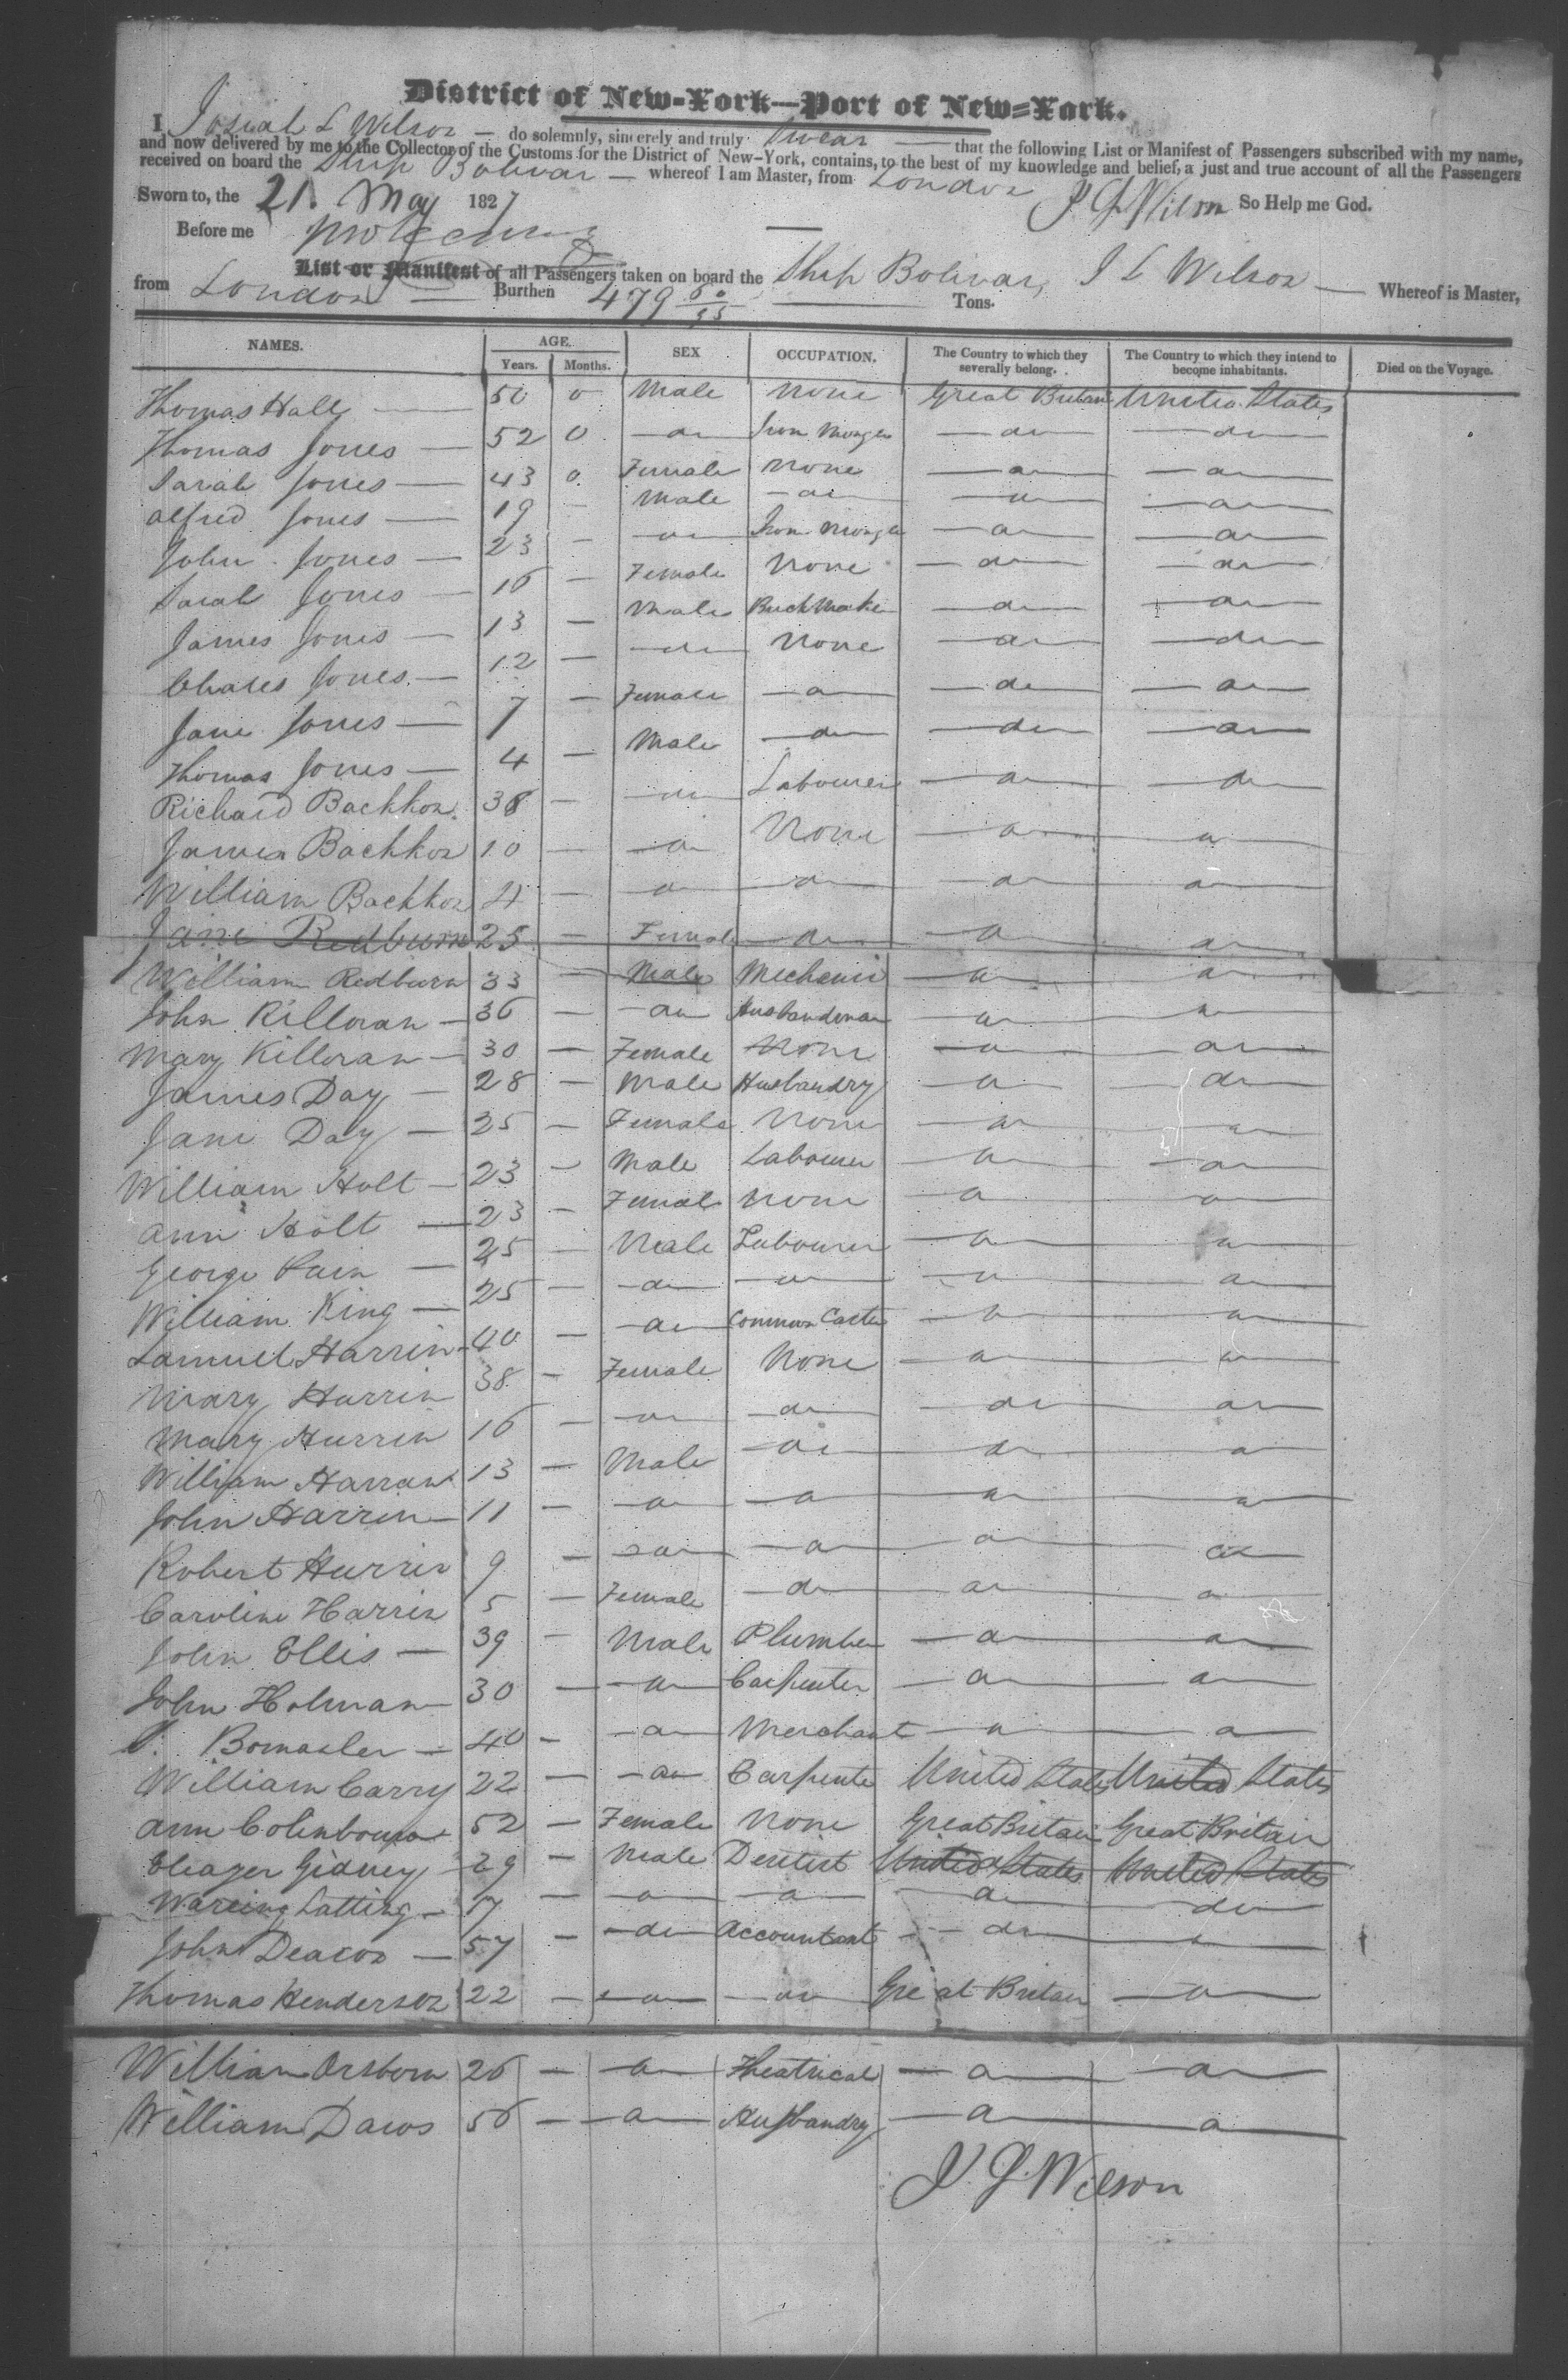 District of New-York—Port of New-York.
I Josiah L Wilson — do solemnly, sincerely and truly Swear — that the following List or Manifest of Passengers subscribed with my name,
and now delivered by me to the Collector of the Customs for the District of New-York, contains, to the best of my knowledge and belief, a just and true account of all the Passengers
received on board the Ship Bolivar — whereof I am Master, from London
Sworn to, the 21. May 1827 J L Wilson So Help me God.
Before me
List or Manifest of all Passengers taken on board the Ship Bolivar, J L Wilson — Whereof is Master,
from London — Burthen 479 Tons.
NAMES. AGE. Years. Months. SEX OCCUPATION. The Country to which they severally belong. The Country to which they intend to become inhabitants. Died on the Voyage.
Thomas Hall — 50 0 Male None Great Britain United States
Thomas Jones — 52 0 — do — Iron Monger — do — — do —
Sarah Jones — 43 0 Female None — do — — do —
Alfred Jones — 19 — Male — do — — do — — do —
John Jones — 23 — — do — Iron Monger — do — — do —
Sarah Jones — 16 — Female None — do — — do —
James Jones — 13 — Male Buckmaker — do — — do —
Charles Jones — 12 — — do — None — do — — do —
Jane Jones — 7 — Female — do — — do — — do —
Thomas Jones — 4 — Male — do — — do — — do —
Richard Backhon 38 — — do — Labourer — do — — do —
James Backhon 10 — — do — None — do — — do —
William Backhon 4 — — do — — do — — do — — do —
Jane Redburn 25 — Female — do — — do — — do —
William Redburn 33 — Male Mechanic — do — — do —
John Killoran — 36 — — do — Husbandman — do — — do —
Mary Killoran — 30 — Female None — do — — do —
James Day — 28 — Male Husbandry — do — — do —
Jane Day — 25 — Female None — do — — do —
William Holt — 23 — Male Labourer — do — — do —
Ann Holt — 23 — Female None — do — — do —
George Pain — 25 — Male Labourer — do — — do —
William King — 25 — — do — — do — — do — — do —
Samuel Harrin 40 — — do — Common Carter — do — — do —
Mary Harrin 38 — Female None — do — — do —
Mary Harrin 16 — — do — — do — — do — — do —
William Harran 13 — Male — do — — do — — do —
John Harrin — 11 — — do — — do — — do — — do —
Robert Harrin 9 — — do — — do — — do — — do —
Caroline Harrin 5 — Female — do — — do — — do —
John Ellis — 39 — Male Plumber — do — — do —
John Holman — 30 — — do — Carpenter — do — — do —
Bomasler — 40 — — do — Merchant — do — — do —
William Carry 22 — — do — Carpenter United States United States
Ann Colinbourn 52 — Female None Great Britain Great Britain
Eleazer Gidney — 29 — Male Dentist United States United States
Wareing Latting — 17 — — do — — do — — do — — do —
John Deacon — 57 — — do — Accountant — do — — do —
Thomas Henderson 22 — — do — — do — Great Britain — do —
William Orsborn 26 — — do — Theatrical — do — — do —
William Daws 56 — — do — Husbandry — do — — do —
J. L. Wilson